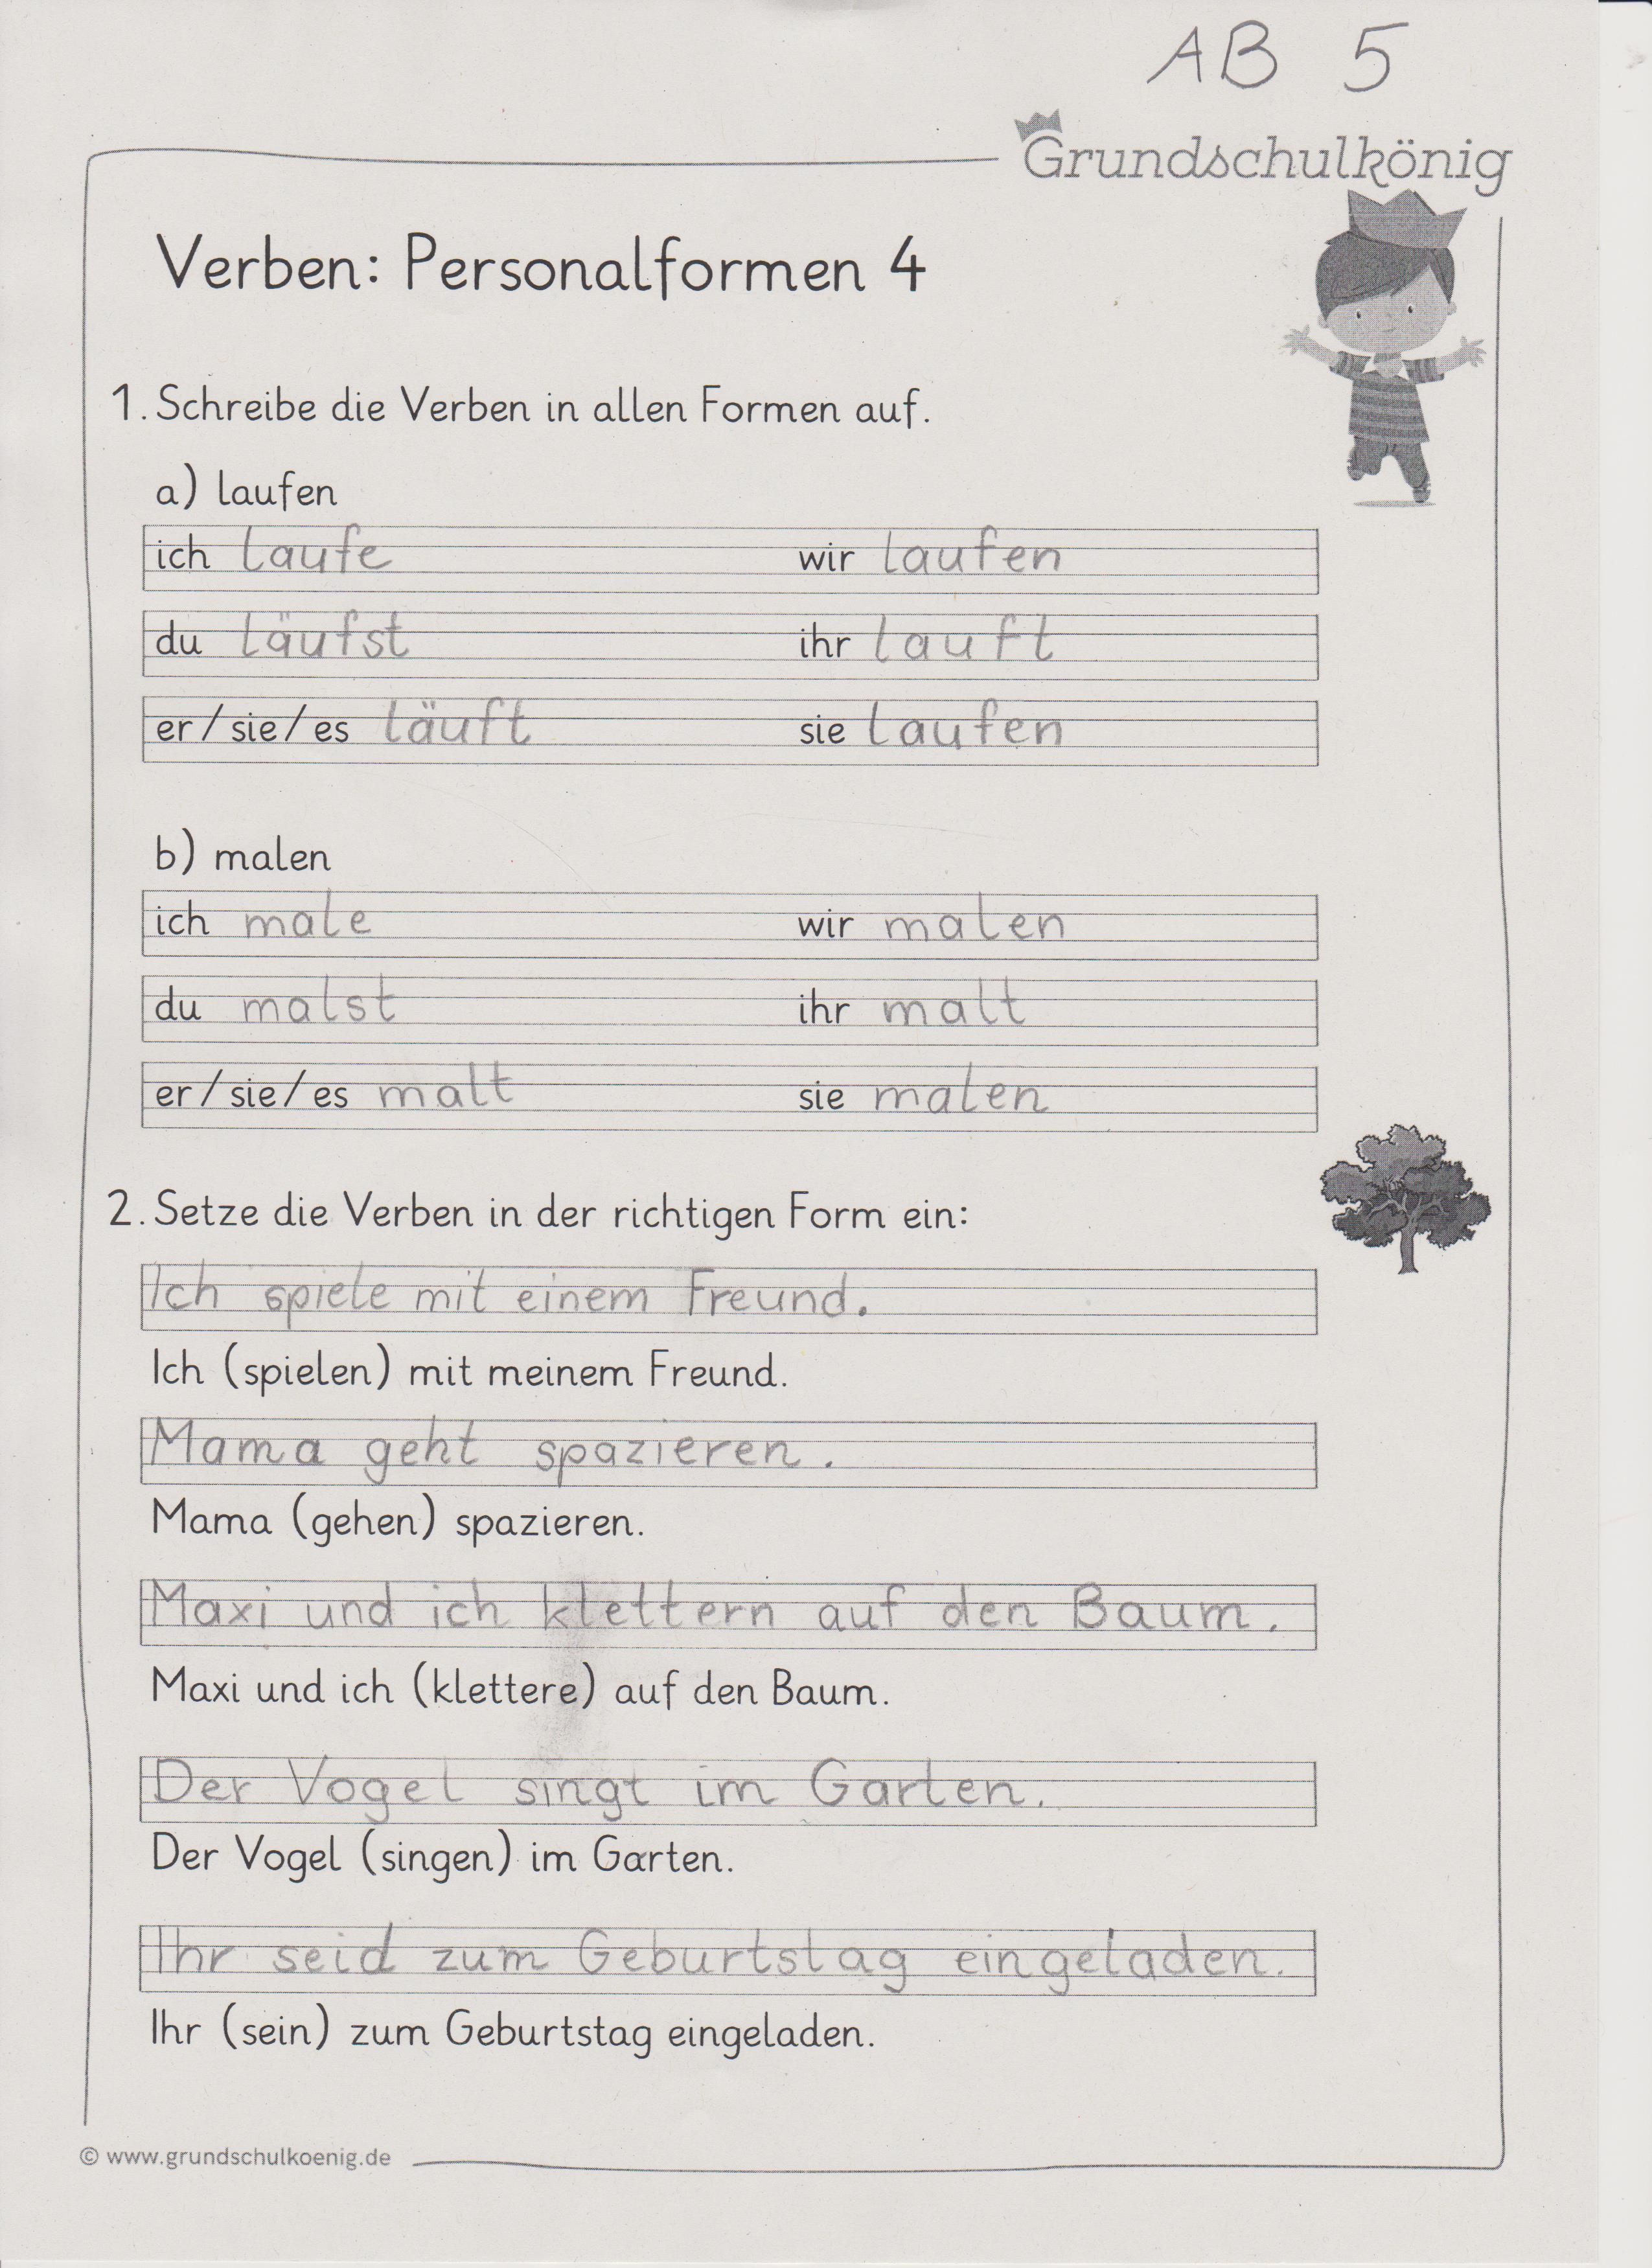 AB 5
Grundschulkönig
Verben: Personalformen 4
1. Schreibe die Verben in allen Formen auf.
a) laufen
ich laufe wir laufen
du läufst ihr lauft
er/sie/es läuft sie laufen
b) malen
ich male wir malen
du malst ihr malt
er/sie/es malt sie malen
2. Setze die Verben in der richtigen Form ein:
Ich spiele mit einem Freund.
Ich (spielen) mit meinem Freund.
Mama geht spazieren.
Mama (gehen) spazieren.
Maxi und ich klettern auf den Baum.
Maxi und ich (klettere) auf den Baum.
Der Vogel singt im Garten.
Der Vogel (singen) im Garten.
Ihr seid zum Geburtstag eingeladen.
Ihr (sein) zum Geburtstag eingeladen.
© www.grundschulkoenig.de